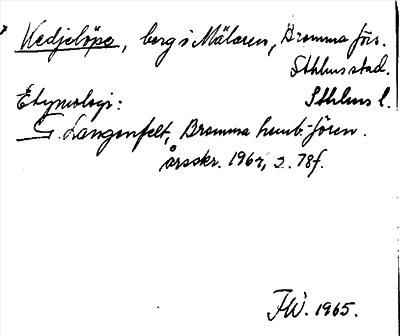 Kedjelöpe, berg i Mälaren, Bromma förs.
Sthlms stad.
Sthlms l.
Etymologi:
G. Langenfelt, Bromma hemb.-fören.
årsskr. 1964, s. 78f.
FW. 1965.